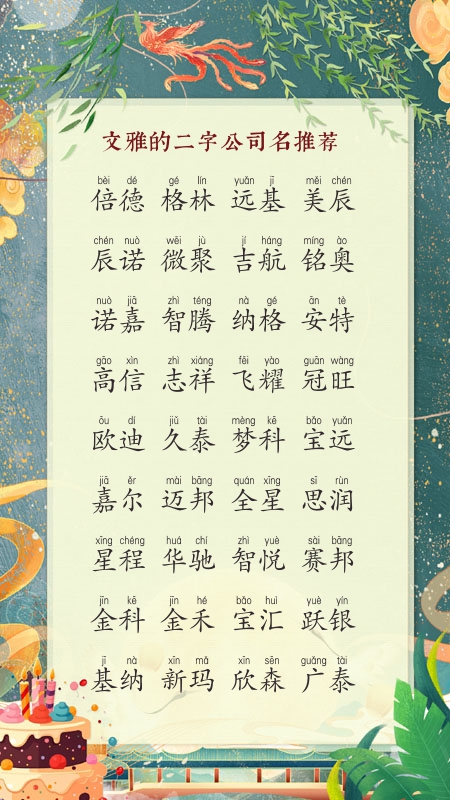 文雅的二字公司名推荐
bèi dé gé lín yuǎn jī měi chén
倍德 格林 远基 美辰
chén nuò wēi jù jí háng míng ào
辰诺 微聚 吉航 铭奥
nuò jiā zhì téng nà gé ān tè
诺嘉 智腾 纳格 安特
gāo xìn zhì xiáng fēi yào guān wàng
高信 志祥 飞耀 冠旺
ōu dí jiǔ tài mèng kē bǎo yuǎn
欧迪 久泰 梦科 宝远
jiā ěr mài bāng quán xīng sī rùn
嘉尔 迈邦 全星 思润
xīng chéng huá chí zhì yuè sài bāng
星程 华驰 智悦 赛邦
jīn kē jīn hé bǎo huì yuè yín
金科 金禾 宝汇 跃银
jī nà xīn mǎ xīn sēn guǎng tài
基纳 新玛 欣森 广泰